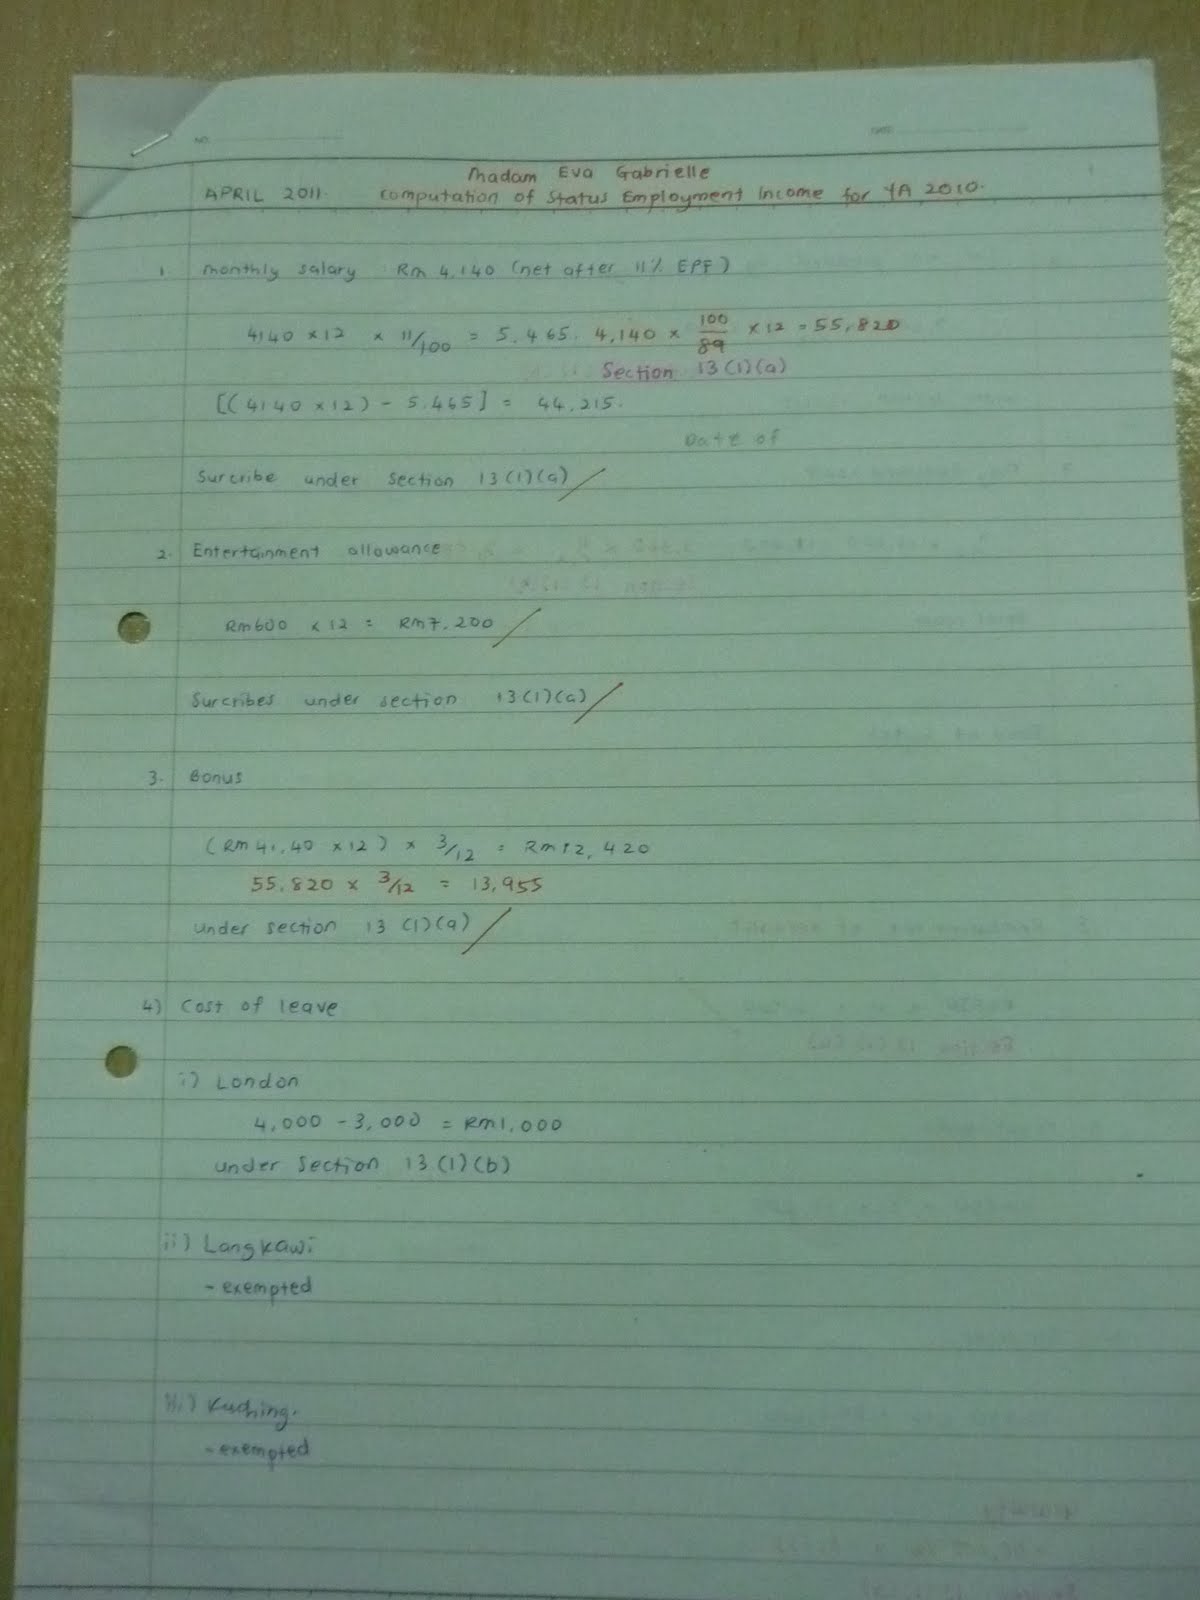 NO.
DATE:
Madam Eva Gabrielle
APRIL 2011. Computation of Status Employment Income for YA 2010.
1. monthly salary : Rm 4,140 (net after 11% EPF)
4140 × 12 × 11/100 = 5,465. 4,140 × 100/89 × 12 = 55,820
Section 13(1)(a)
[(4140 × 12) - 5,465] = 44,215.
Date of
Surcribe under section 13(1)(a)
2. Entertainment allowance
Rm600 × 12 = Rm7,200
Surcribes under section 13(1)(a)
3. Bonus
(Rm 41,40 × 12) × 3/12 = Rm12,420
55,820 × 3/12 = 13,955
under section 13 (1)(a)
4) Cost of leave
i) London
4,000 - 3,000 = Rm1,000
under section 13(1)(b)
ii) Langkawi
- exempted
iii) Kuching.
- exempted